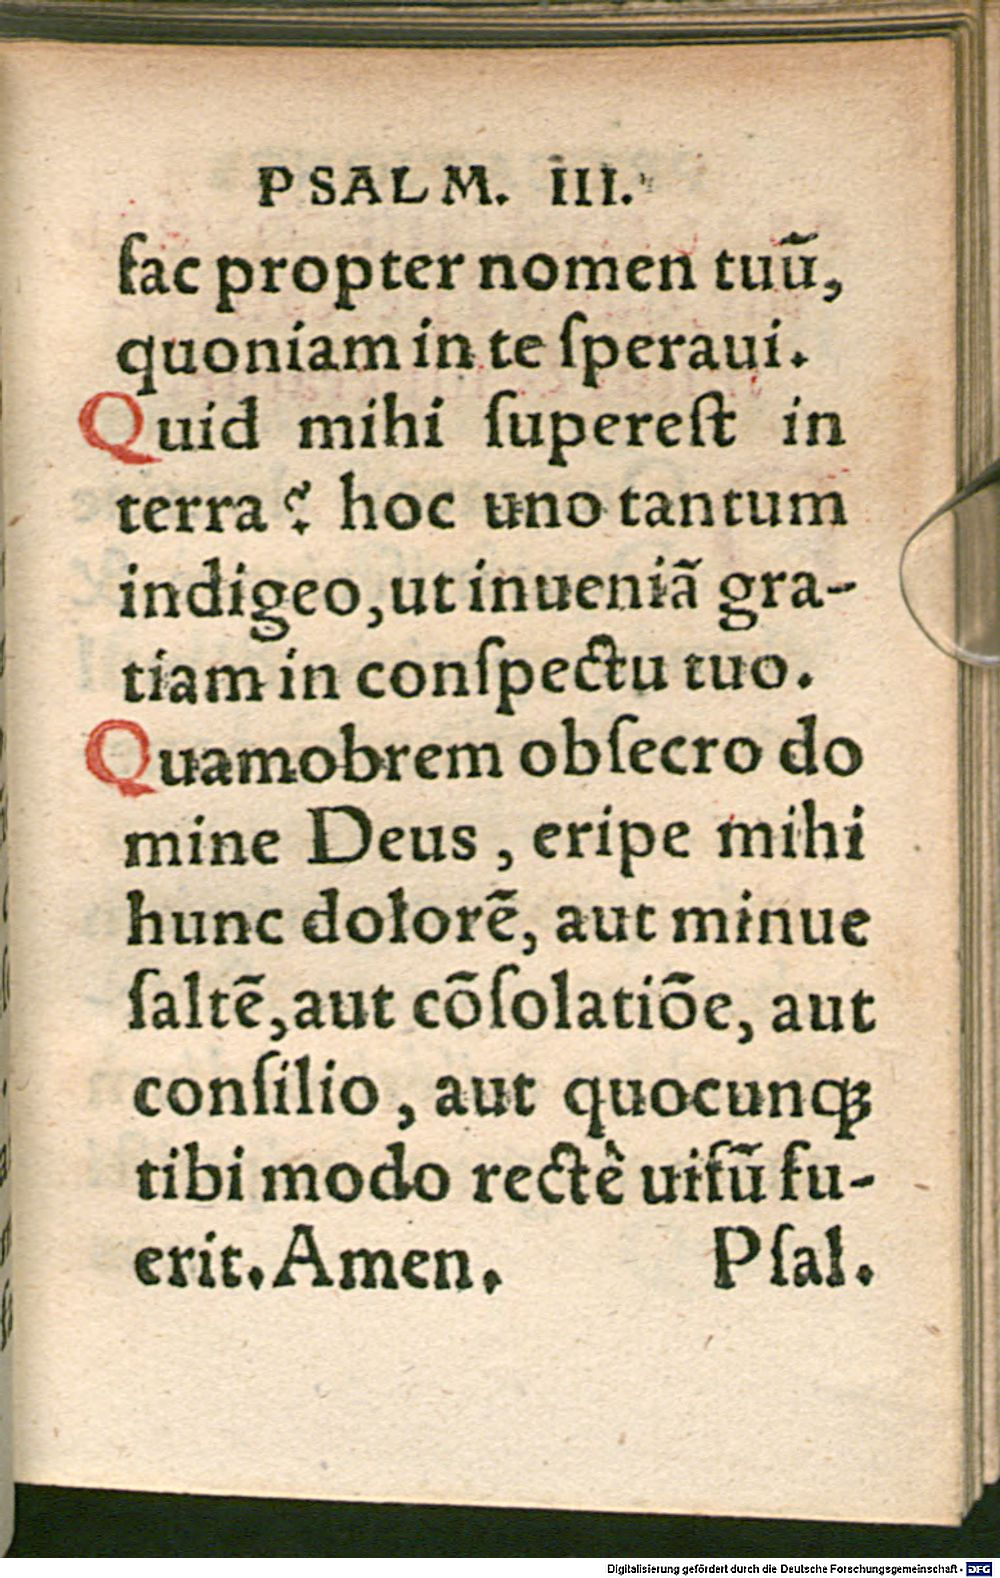 PSALM. III.
fac propter nomen tuũ,
quoniam in te ſperaui.
Quid mihi ſupereſt in
terra? hoc uno tantum
indigeo, ut inueniã gra-
tiam in conſpectu tuo.
Quamobrem obſecro do
mine Deus, eripe mihi
hunc dolorẽ, aut minue
ſaltẽ, aut cõſolatiõe, aut
conſilio, aut quocunqꝫ
tibi modo rectè uiſũ fu-
erit. Amen. Pſal.
Digitalisierung gefördert durch die Deutsche Forschungsgemeinschaft - DFG